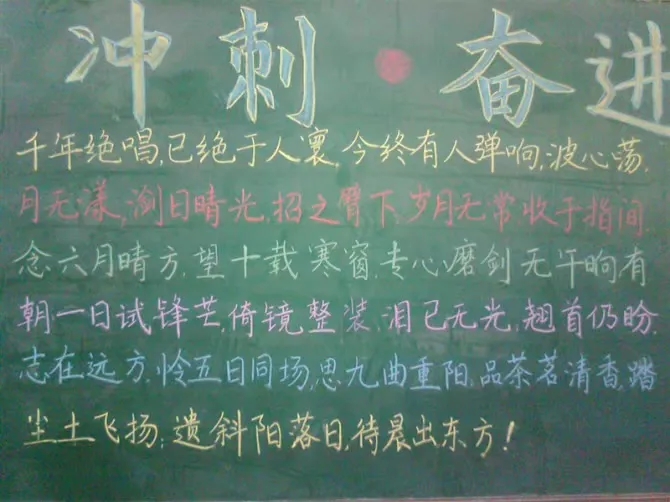 冲刺·奋进
千年绝唱,已绝于人寰,今终有人弹响,波心荡,
月无漾,浏日晴光,招之臂下,岁月无常收于指间.
念六月晴方,望十载寒窗,专心磨剑无午晌有
朝一日试锋芒,倚镜整装,泪已无光,翘首仍盼,
志在远方,怜五日同场,思九曲重阳,品茶茗清香,踏
尘土飞扬;遗斜阳落日,待晨出东方!